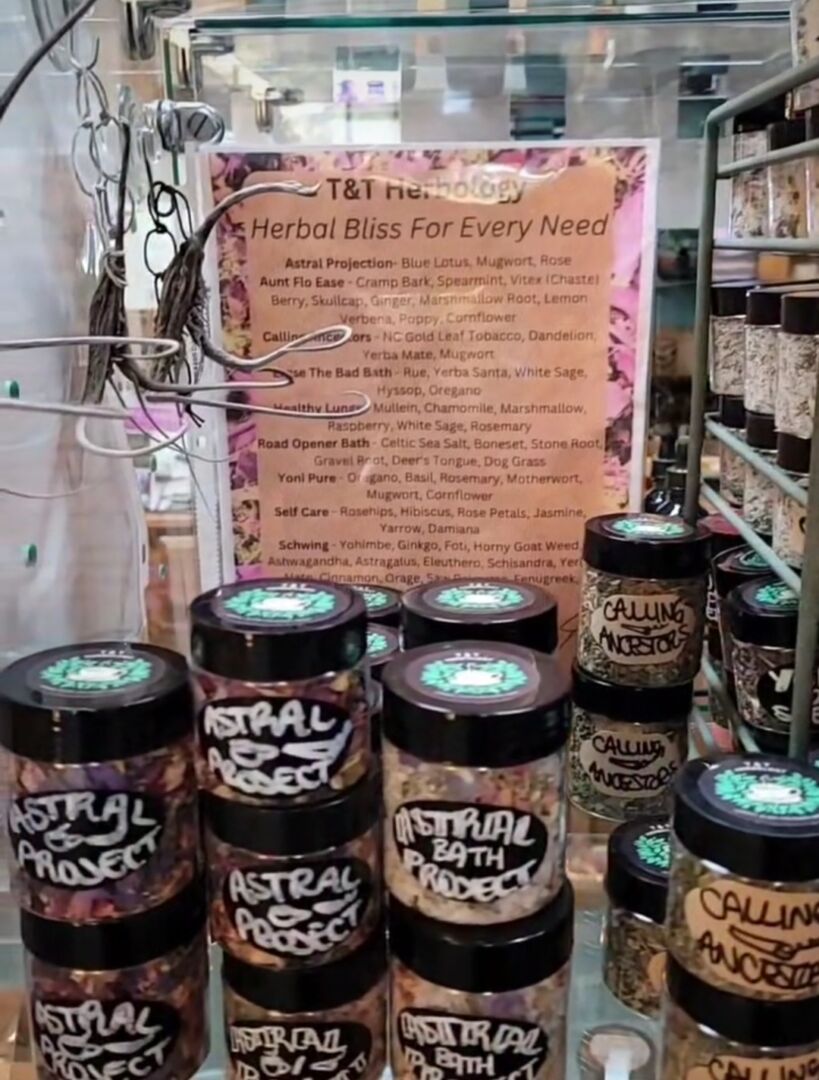 T&T Herbology
Herbal Bliss For Every Need
Astral Projection- Blue Lotus, Mugwort, Rose
Aunt Flo Ease - Cramp Bark, Spearmint, Vitex (Chaste)
Berry, Skullcap, Ginger, Marshmallow Root, Lemon
Verbena, Poppy, Cornflower
Calling Ancestors - NC Gold Leaf Tobacco, Dandelion,
Yerba Mate, Mugwort
The Bad Bath - Rue, Yerba Santa, White Sage,
Hyssop, Oregano
Healthy Lungs Mullein, Chamomile, Marshmallow,
Raspberry, White Sage, Rosemary
Road Opener Bath - Celtic Sea Salt, Boneset, Stone Root,
Gravel Root, Deer's Tongue, Dog Grass
Yoni Pure - Oregano, Basil, Rosemary, Motherwort,
Mugwort, Cornflower
Self Care - Rosehips, Hibiscus, Rose Petals, Jasmine,
Yarrow, Damiana
Schwing - Yohimbe, Ginkgo, Foti, Horny Goat Weed
Ashwagandha, Astragalus, Eleuthero, Schisandra,
Cinnamon, Fenugreek,
CALLING
ANCESTORS
CALLING
ANCESTORS
ASTRAL
PROJECT
ASTRAL
PROJECT
ASTRAL
BATH
PROJECT
ASTRAL
PROJECT
CALLING
ASTRAL
PROJECT
ASTRAL
BATH
CALLING